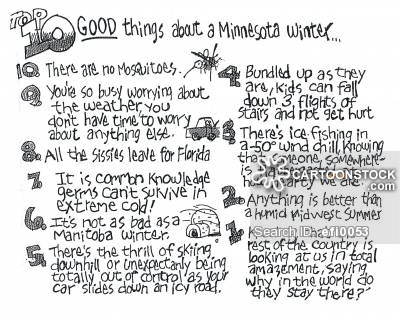 TOP 10 GOOD things about a Minnesota Winter...
10. There are no Mosquitoes.
9. You're so busy worrying about
the weather, you
don't have time to worry
about anything else.
8. All the sissies leave for Florida
7. It is common knowledge
germs can't survive in
extreme cold!
6. It's not as bad as a
Manitoba winter.
5. There's the thrill of skiing
downhill or unexpectantly being
totally out of control as your
car slides down an icy road.
4. Bundled up as they
are, kids can fall
down 3 flights of
stairs and not get hurt
3. There's ice fishing in
a -50° wind chill, knowing
that someone, somewhere-
is
party we are.
2. Anything is better than
a humid midwest summer
1.
rest of the country is
looking at us in total
amazement, saying
why in the world do
they stay there?"
CartoonStock.com
Search ID: efi0053